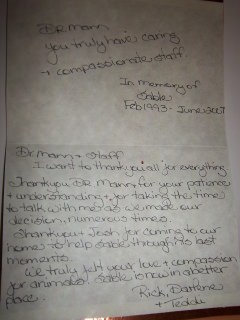 Dr Mann
you truly have caring
+ compassionate staff
In memory of
Sable
Feb 1993 - June 2007
Dr. Mann + Staff
I want to thank you all for everything
Thank you Dr Mann for your patience
+ understanding + for taking the time
to talk with me as we made our
decision, numerous times.
Thank you + Josh for coming to our
home to help Sable through its last
moments.
We truly felt your love + compassion
for animals. Sable is now in a better
place.
Rich, Darlene
+ Teddy